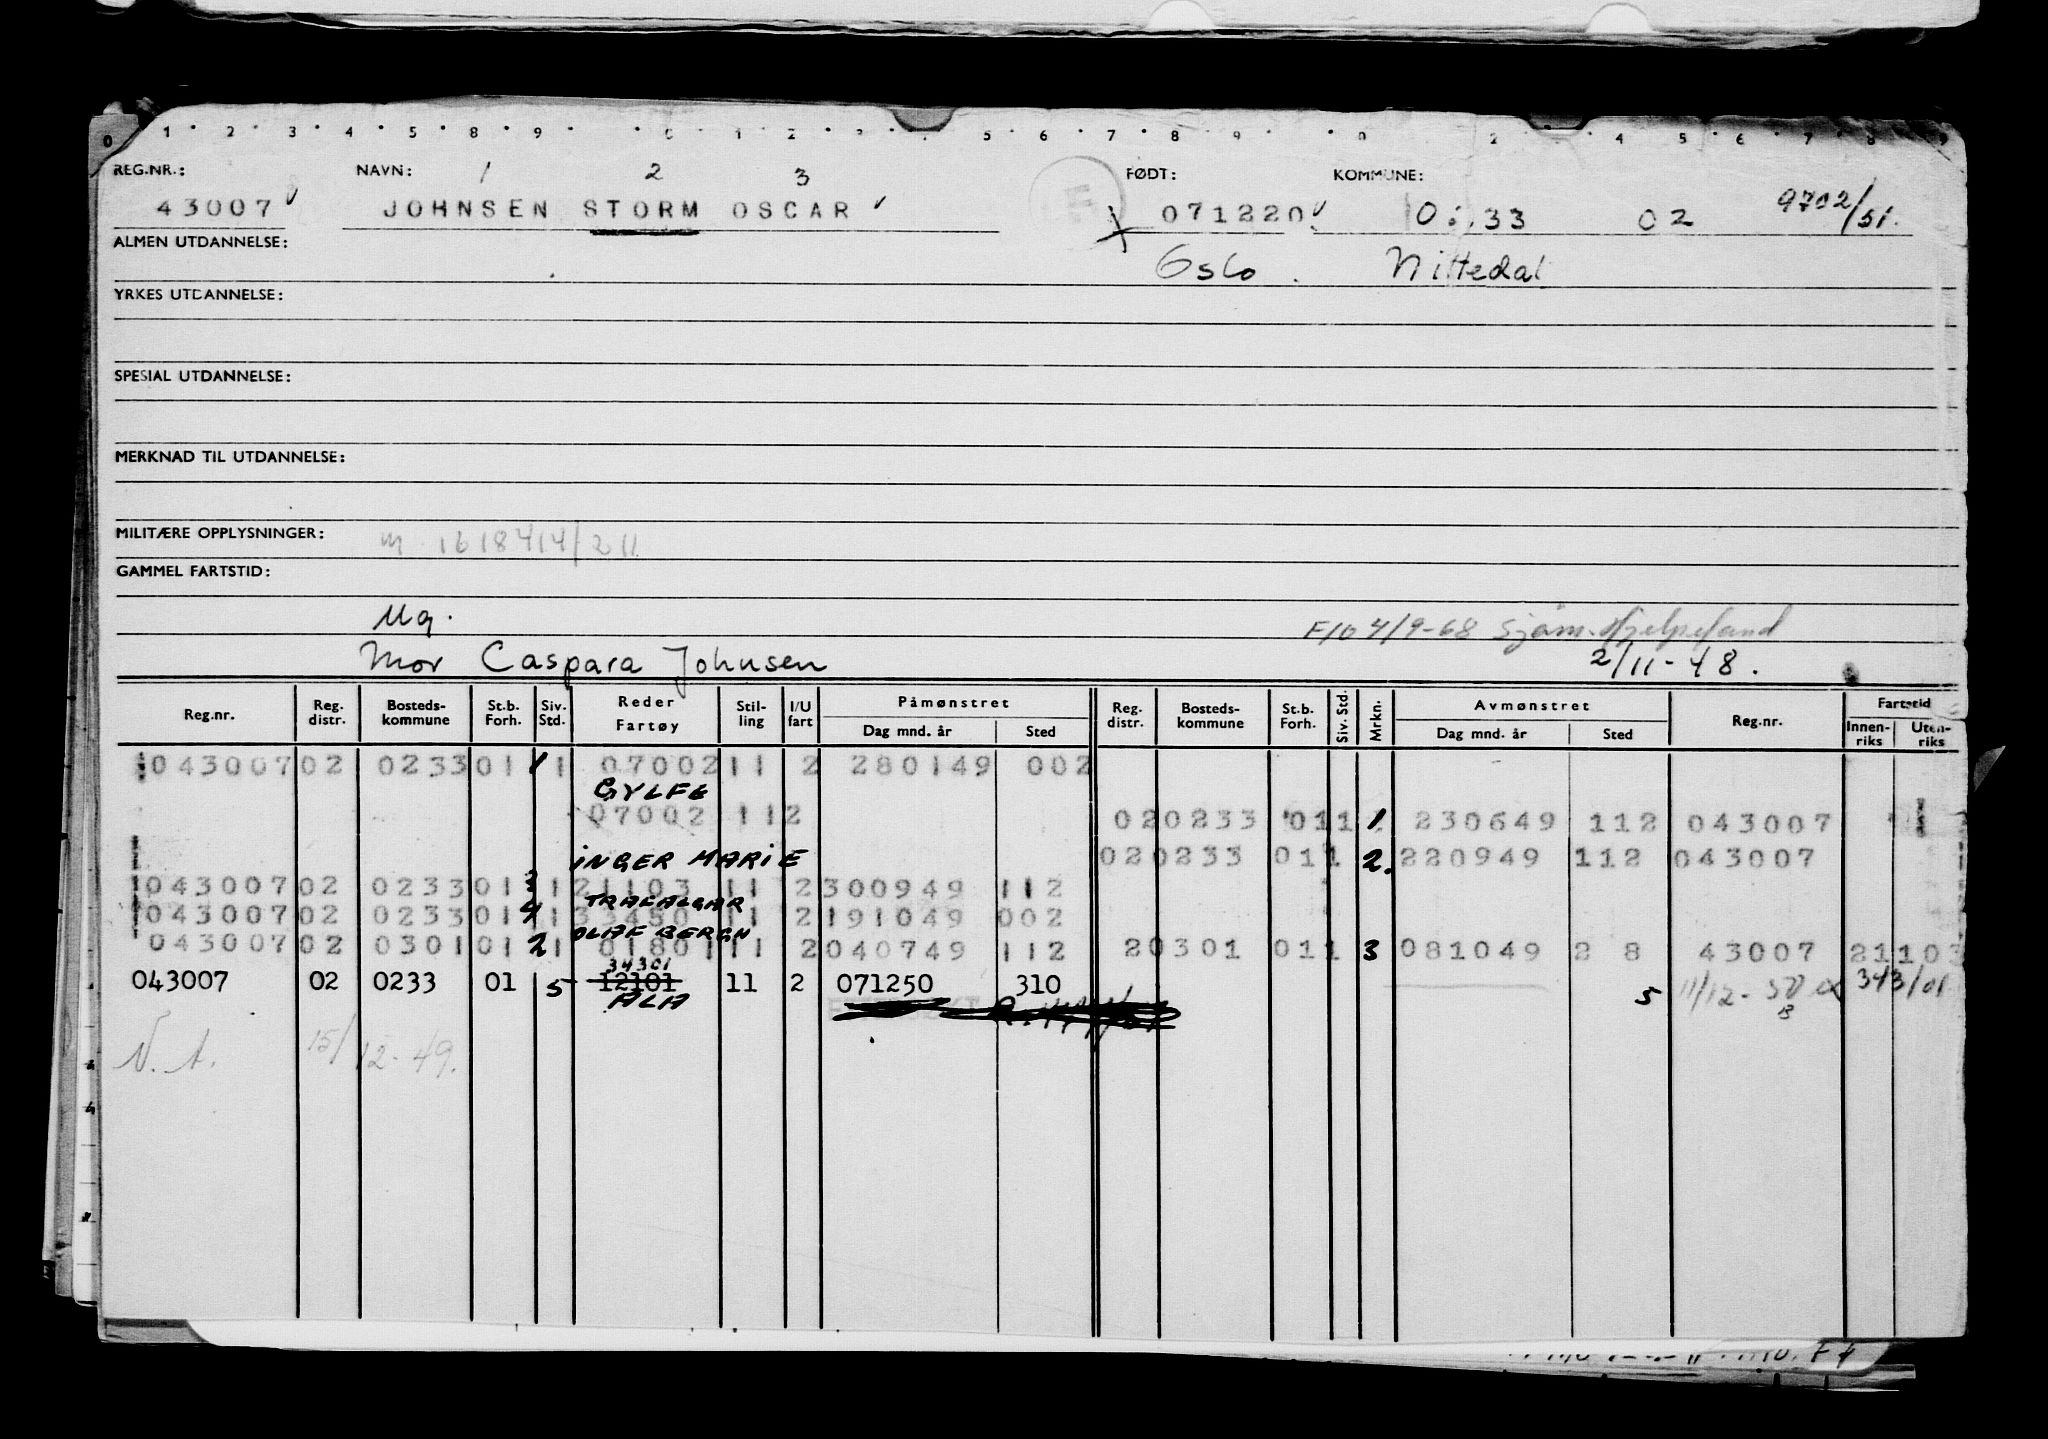 REG.NR.: NAVN: 1 2 3 FØDT: KOMMUNE:
43007 JOHNSEN STORM OSCAR 071220 33 02 9702/51.
ALMEN UTDANNELSE: Oslo. Nittedal
YRKES UTDANNELSE:
SPESIAL UTDANNELSE:
MERKNAD TIL UTDANNELSE:
MILITÆRE OPPLYSNINGER: m 1618414/211
GAMMEL FARTSTID:
Ug. F/O 4/9-68 Sjøm.
Mor Caspara Johnsen 2/11-48.
Reg.nr. Reg. distr. Bosteds-kommune St.b. Forh. Siv. Std. Reder Fartøy Stil-ling I/U fart Påmønstret Dag mnd. år Sted Reg. distr. Bosteds-kommune St.b. Forh. Siv. Std. Mrkn. Avmønstret Dag mnd. år Sted Reg.nr. Fartstid Innen-riks Uten-riks
043007 02 0233 01 1 1 07002 11 2 280149 002
GYLFE
07002 11 2 02 0233 01 1 1 230649 112 043007
INGER MARIE 02 0233 01 1 2. 220949 112 043007
043007 02 0233 01 3 1 21103 11 2 300949 112
TRAFALGAR
043007 02 0233 01 4 1 33450 11 2 191049 002
OLAF BERGH
043007 02 0301 01 2 1 01801 11 2 040749 112 2 0301 01 1 3 081049 2 8 43007 21103
34301
043007 02 0233 01 5 12101 11 2 071250 310 5 11/12-50 343/01
ALA
N.A. 15/12-49.